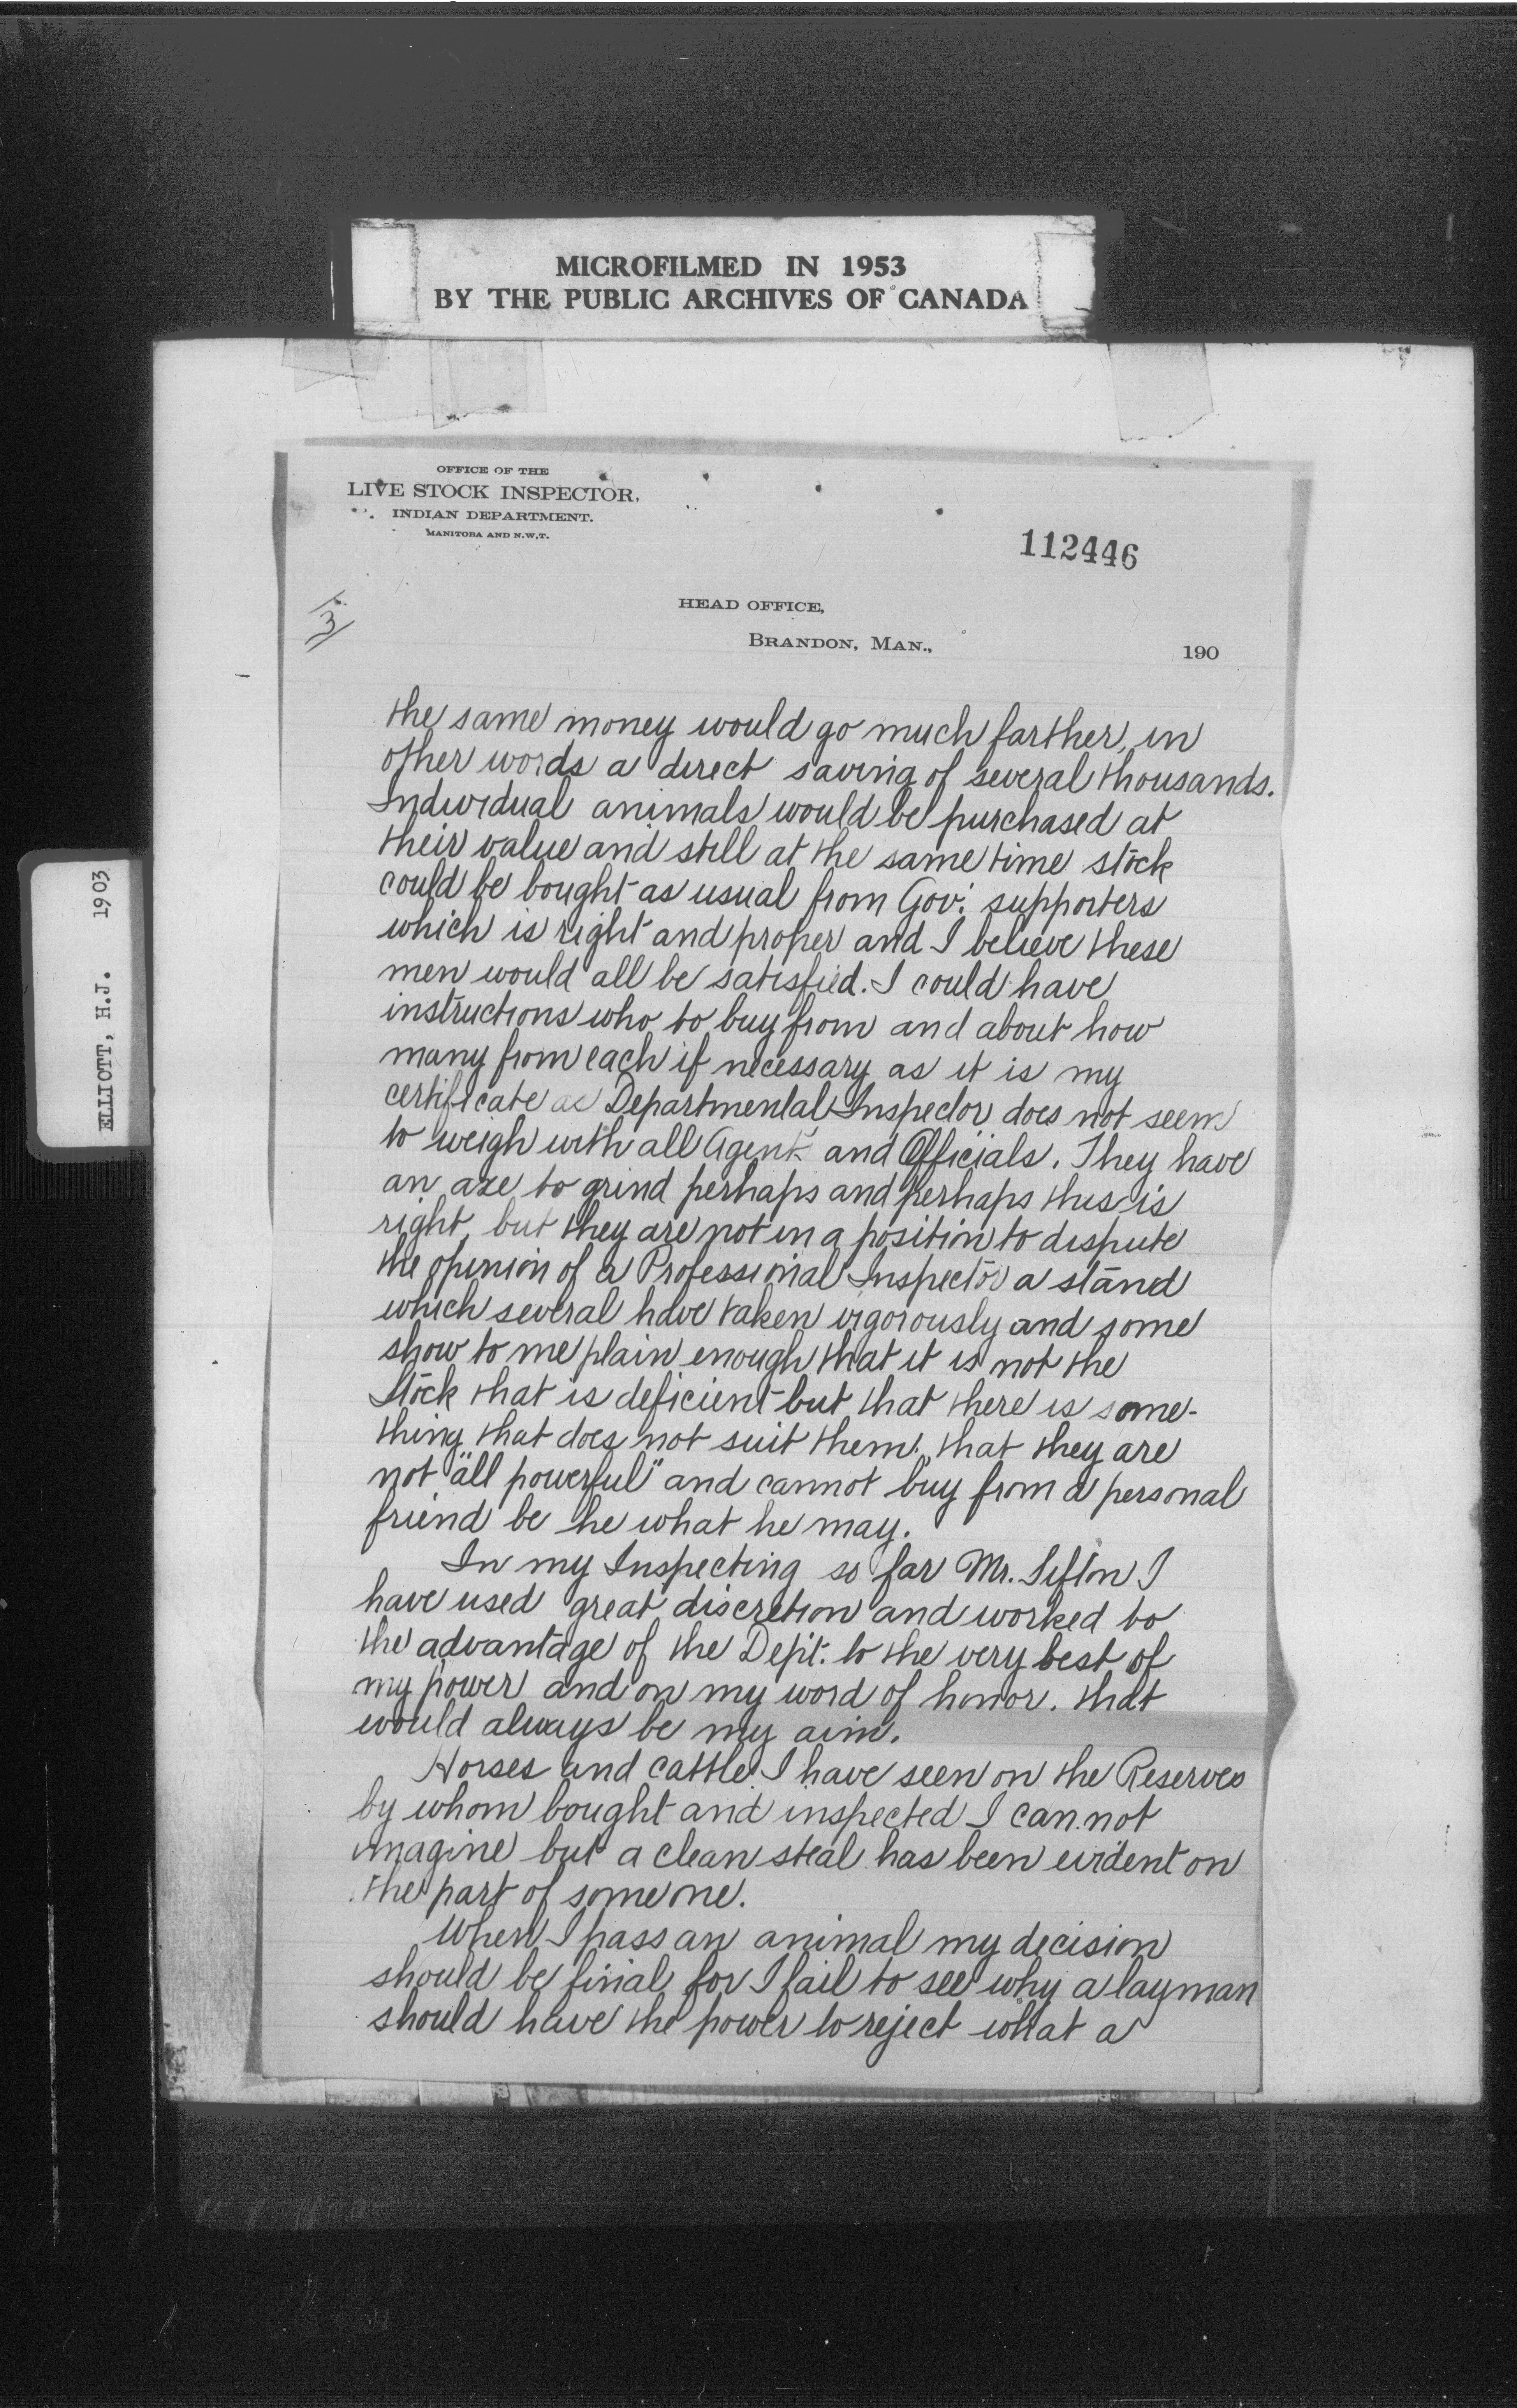 MICROFILMED IN 1953
BY THE PUBLIC ARCHIVES OF CANADA
ELLIOTT, H.J. 1903
OFFICE OF THE
LIVE STOCK INSPECTOR,
INDIAN DEPARTMENT.
MANITOBA AND N.W.T.
112446
3
HEAD OFFICE,
BRANDON, MAN., 190
the same money would go much farther, in
other words a direct saving of several thousands.
Individual animals would be purchased at
their value and still at the same time stock
could be bought as usual from Gov't supporters
which is right and proper and I believe these
men would all be satisfied. I could have
instructions who to buy from and about how
many from each if necessary as it is my
certificate as Departmental Inspector does not seem
to weigh with all Agents and Officials. They have
an axe to grind perhaps and perhaps this is
right, but they are not in a position to dispute
the opinion of a Professional Inspector a stand
which several have taken vigorously and some
show to me plain enough that it is not the
Stock that is deficient but that there is some-
thing that does not suit them, that they are
not "all powerful" and cannot buy from a personal
friend be he what he may.
In my Inspecting so far Mr. Sifton I
have used great discretion and worked to
the advantage of the Dep't. to the very best of
my power and on my word of honor. that
would always be my aim.
Horses and cattle I have seen on the Reserves
by whom bought and inspected I can not
imagine but a clean steal has been evident on
the part of some one.
When I pass an animal my decision
should be final for I fail to see why a layman
should have the power to reject what a